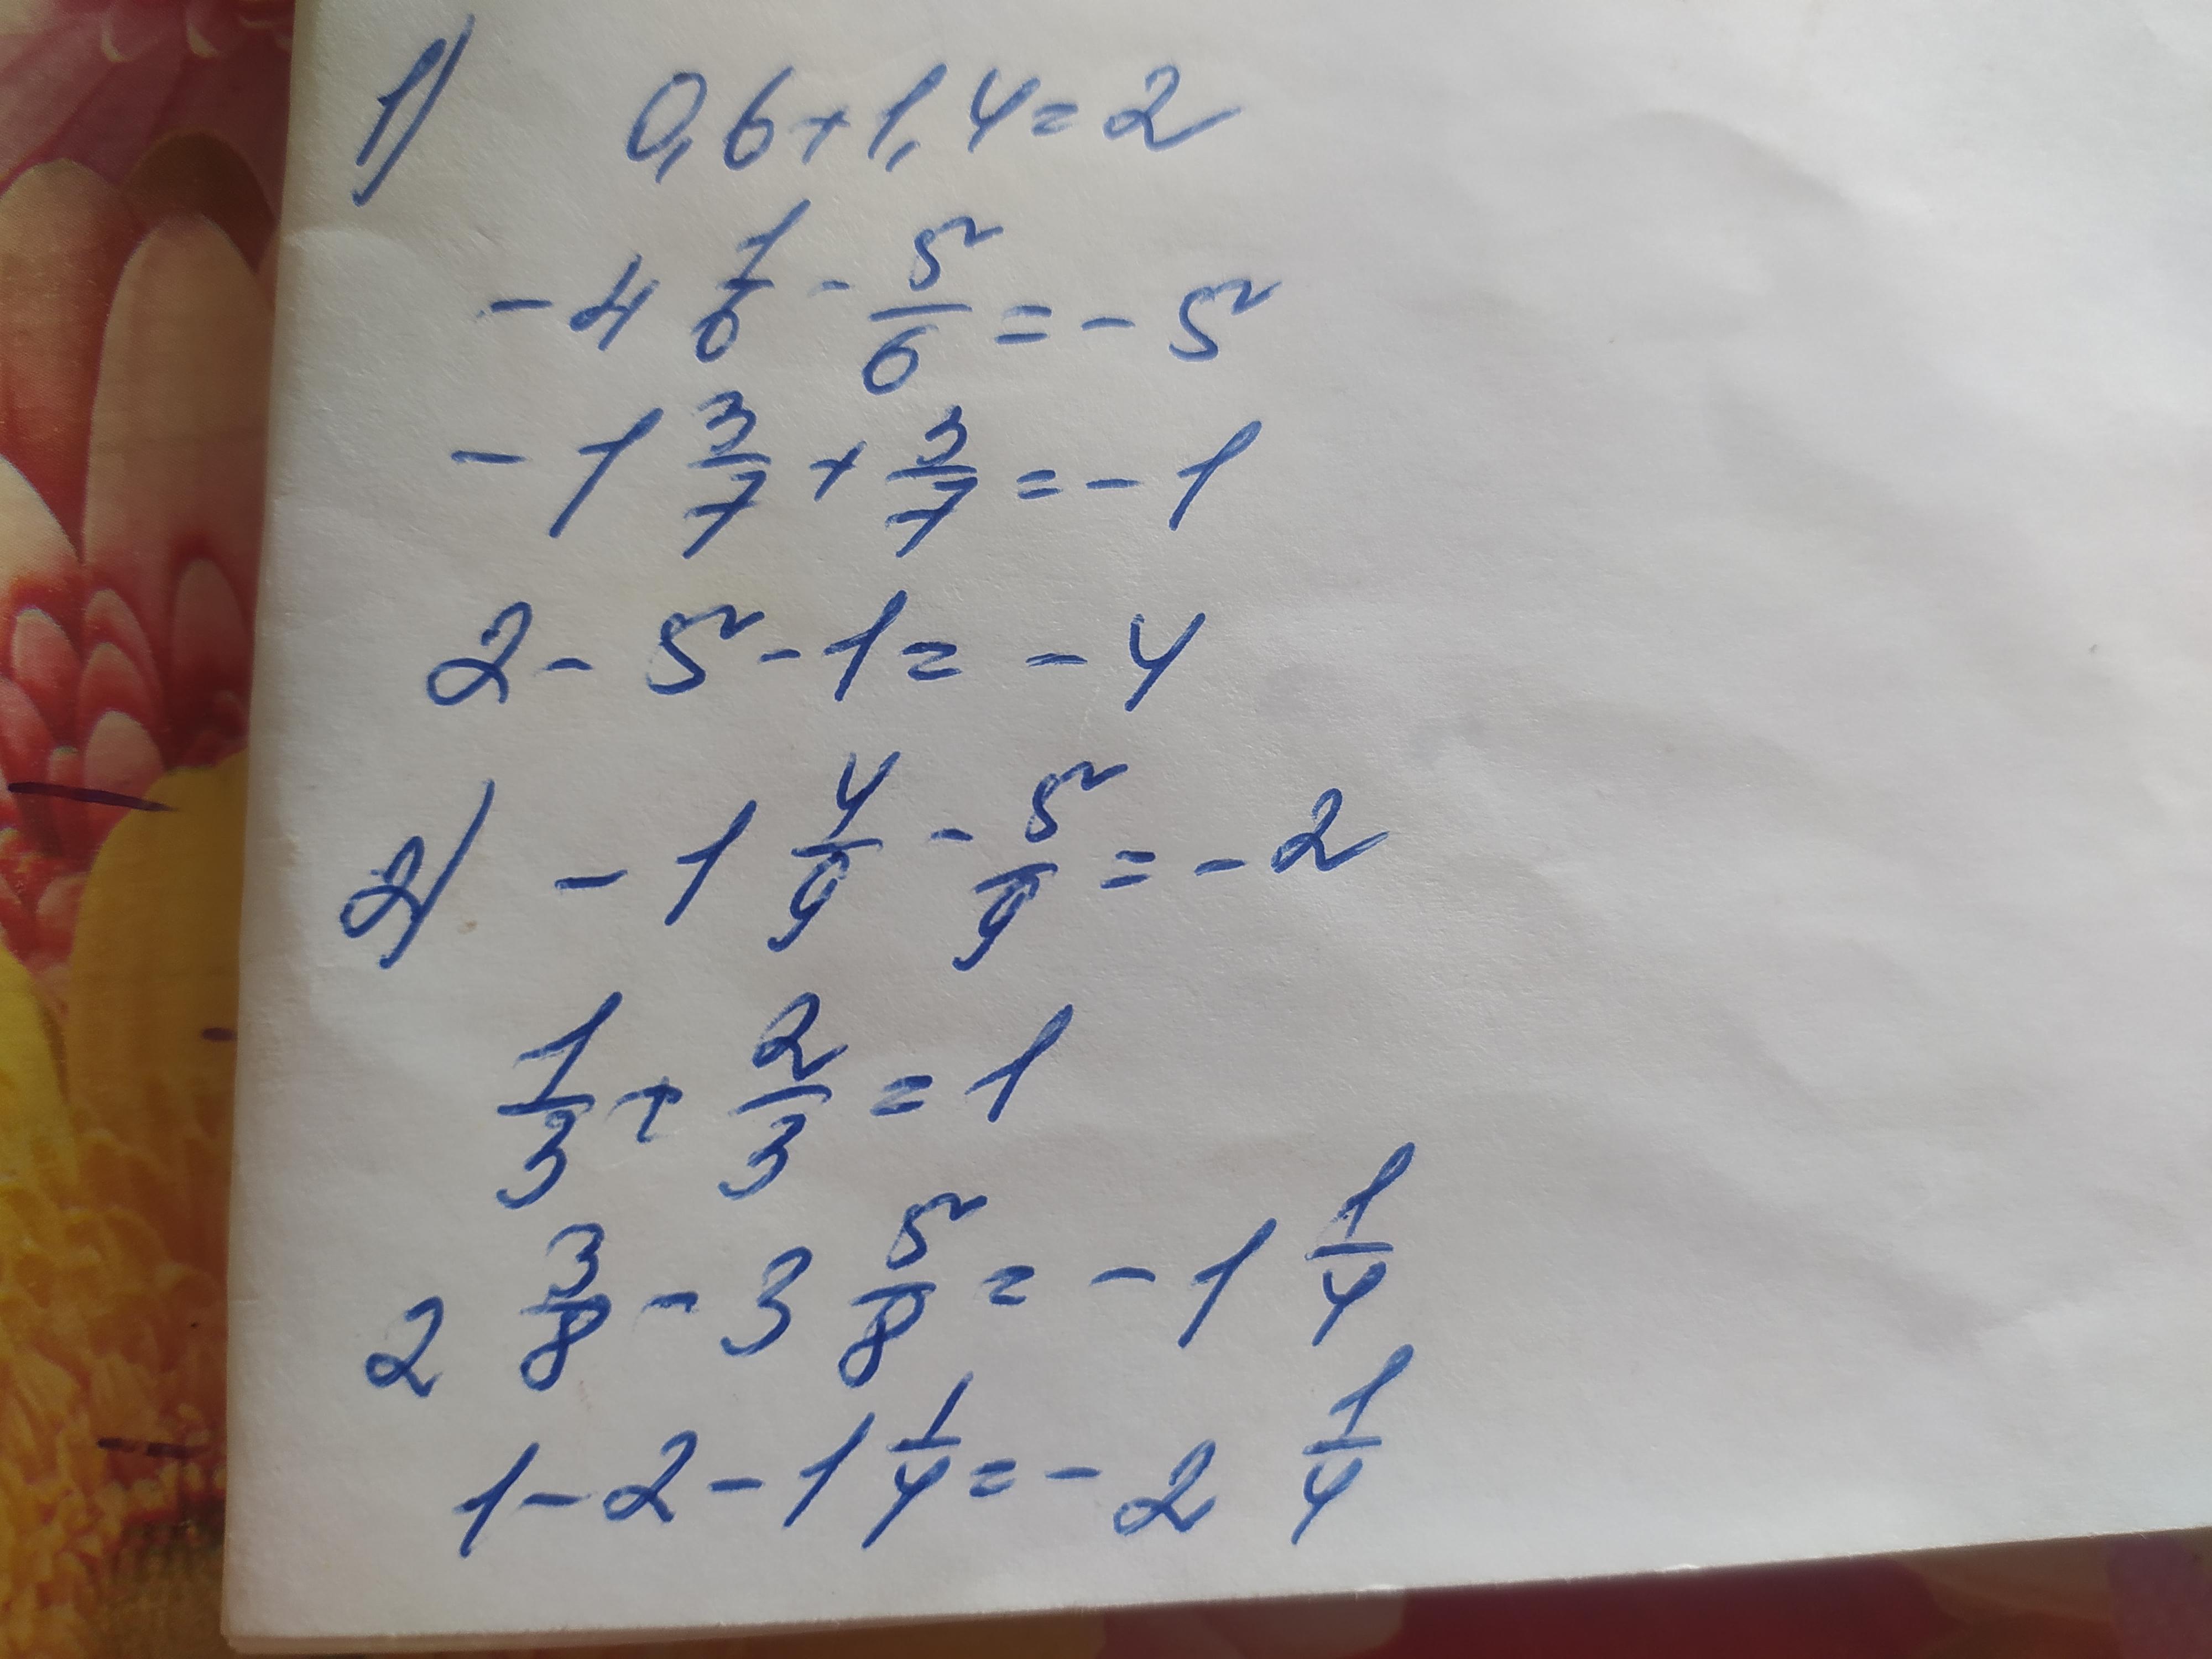 1) 0,6+1,4=2
-4 1/6 - 5/6 = -5
-1 3/7 + 3/7 = -1
2-5-1= -4
2) -1 4/9 - 5/9 = -2
1/3 + 2/3 = 1
2 3/8 - 3 5/8 = -1 1/4
1-2-1 1/4 = -2 1/4